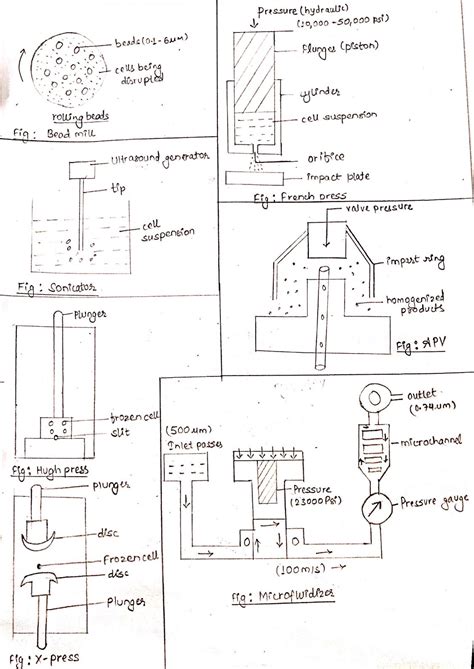 beads(0.1-6um)
cells being
disrupted
rolling beads
Fig: Bead mill
Pressure (hydraulic)
(10,000 -50,000 psi)
Plunges (piston)
cylinder
cell suspension
orifice
impact plate
Fig: French press
Ultrasound generator
tip
cell
suspension
Fig: Sonicator
valve pressure
impart ring
homogenized
products
Fig: APV
Plunger
frozen cell
slit
Fig: Hugh press
plunger
disc
Frozen cell
disc
Plunger
Fig: X-press
(500um)
Inlet passes
Pressure
(23000Psi)
(100m/s)
outlet
(0.74um)
microchannel
Pressure gauge
Fig: Microfluidizer